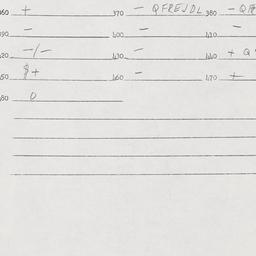 360 + 370 - QFREJDL 380 - QFR
390 - 400 - 410 -
420 -/- 430 - 440 + Q
450 $+ 460 - 470 +
480 0